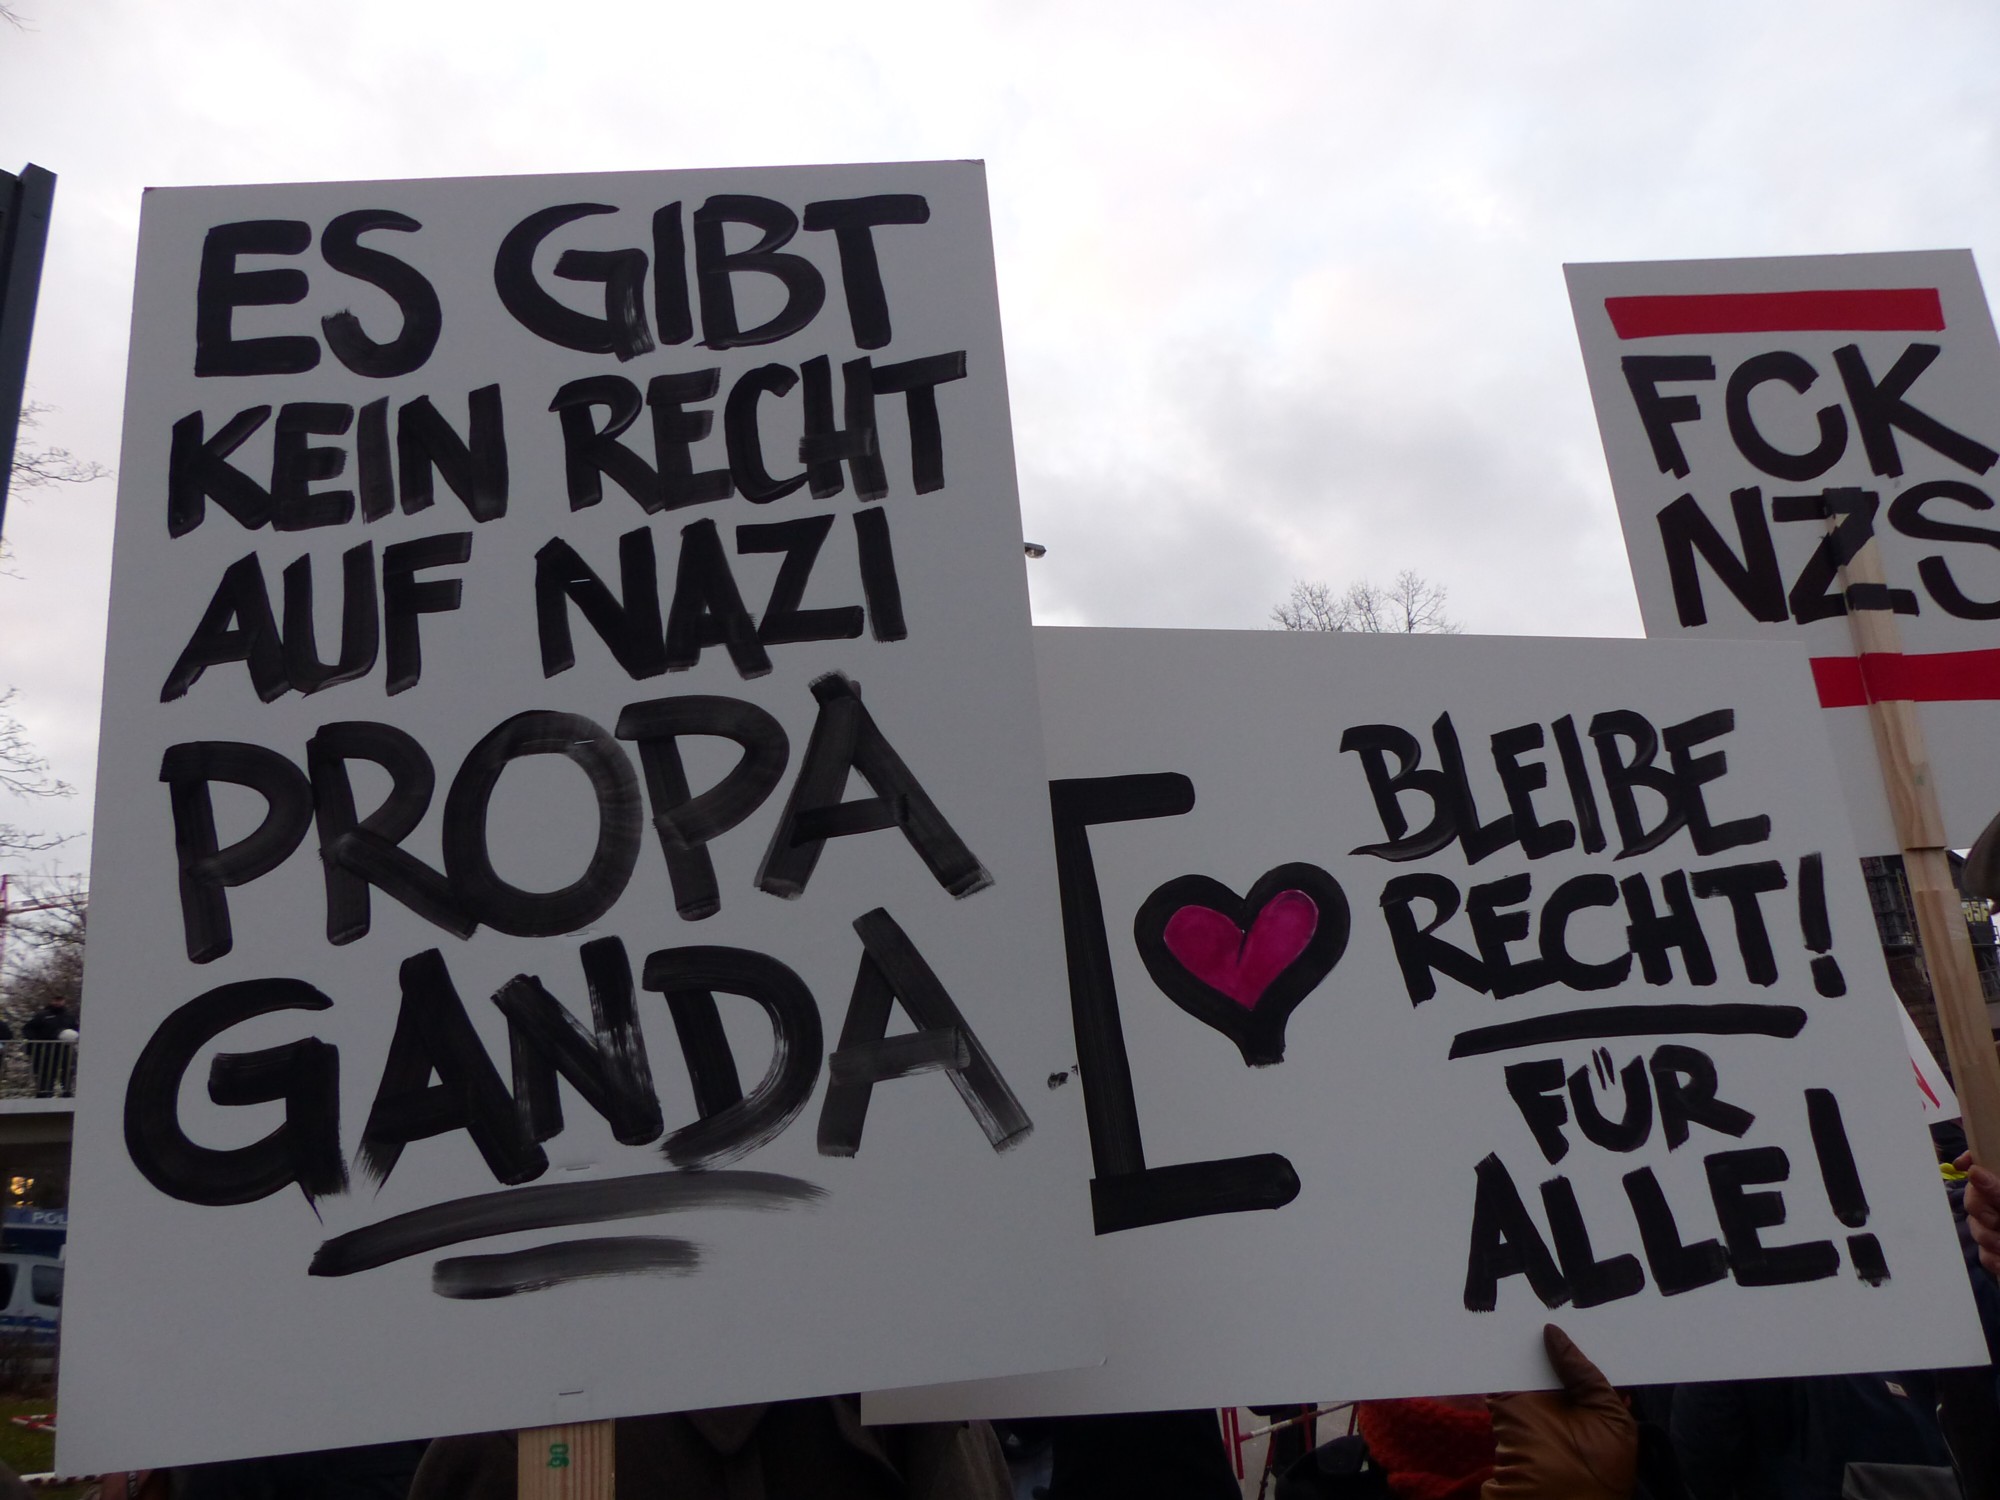 ES GIBT
KEIN RECHT
AUF NAZI
PROPA
GANDA
I ♥
BLEIBE
RECHT!
FÜR
ALLE!
FCK
NZS
POL